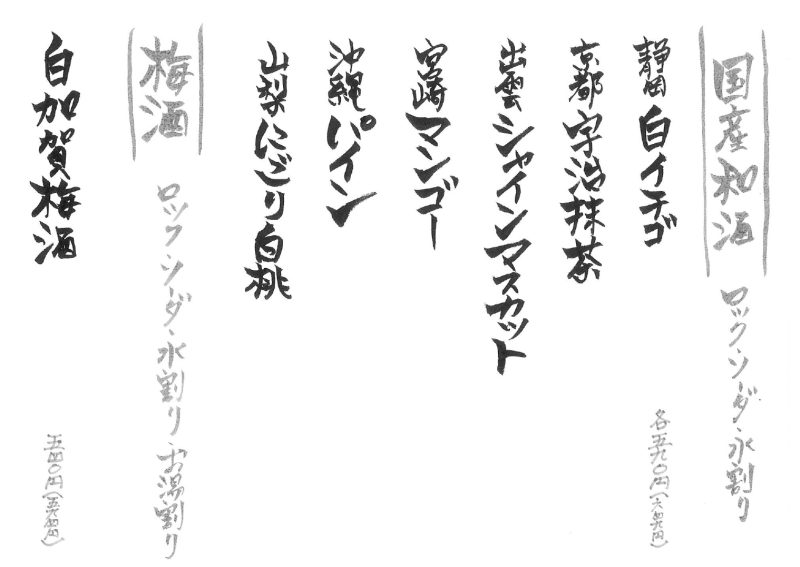 国産和酒 ロック・ソーダ・水割り
各五九〇円(六四九円)
静岡 白イチゴ
京都 宇治抹茶
出雲 シャインマスカット
宮崎 マンゴー
沖縄 パイン
山梨 にごり白桃
梅酒 ロック・ソーダ・水割り・お湯割り
白加賀梅酒
五四〇円(五九四円)